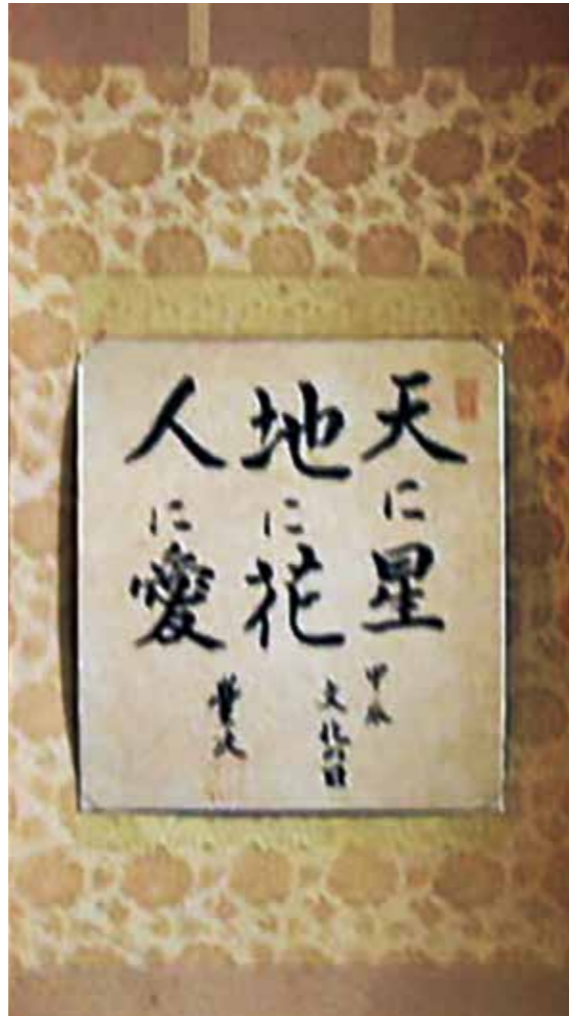 天に星
地に花
人に愛
甲辰
文化の日